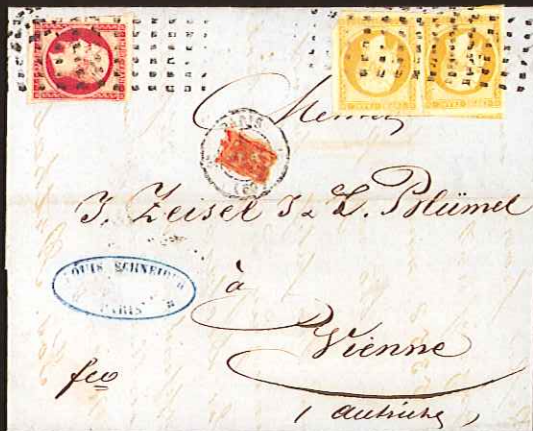 PARIS
(60)
J. Zeisel J & L. Blümel
LOUIS SCHNEIDER
PARIS
à
Vienne
fco
(Autriche)